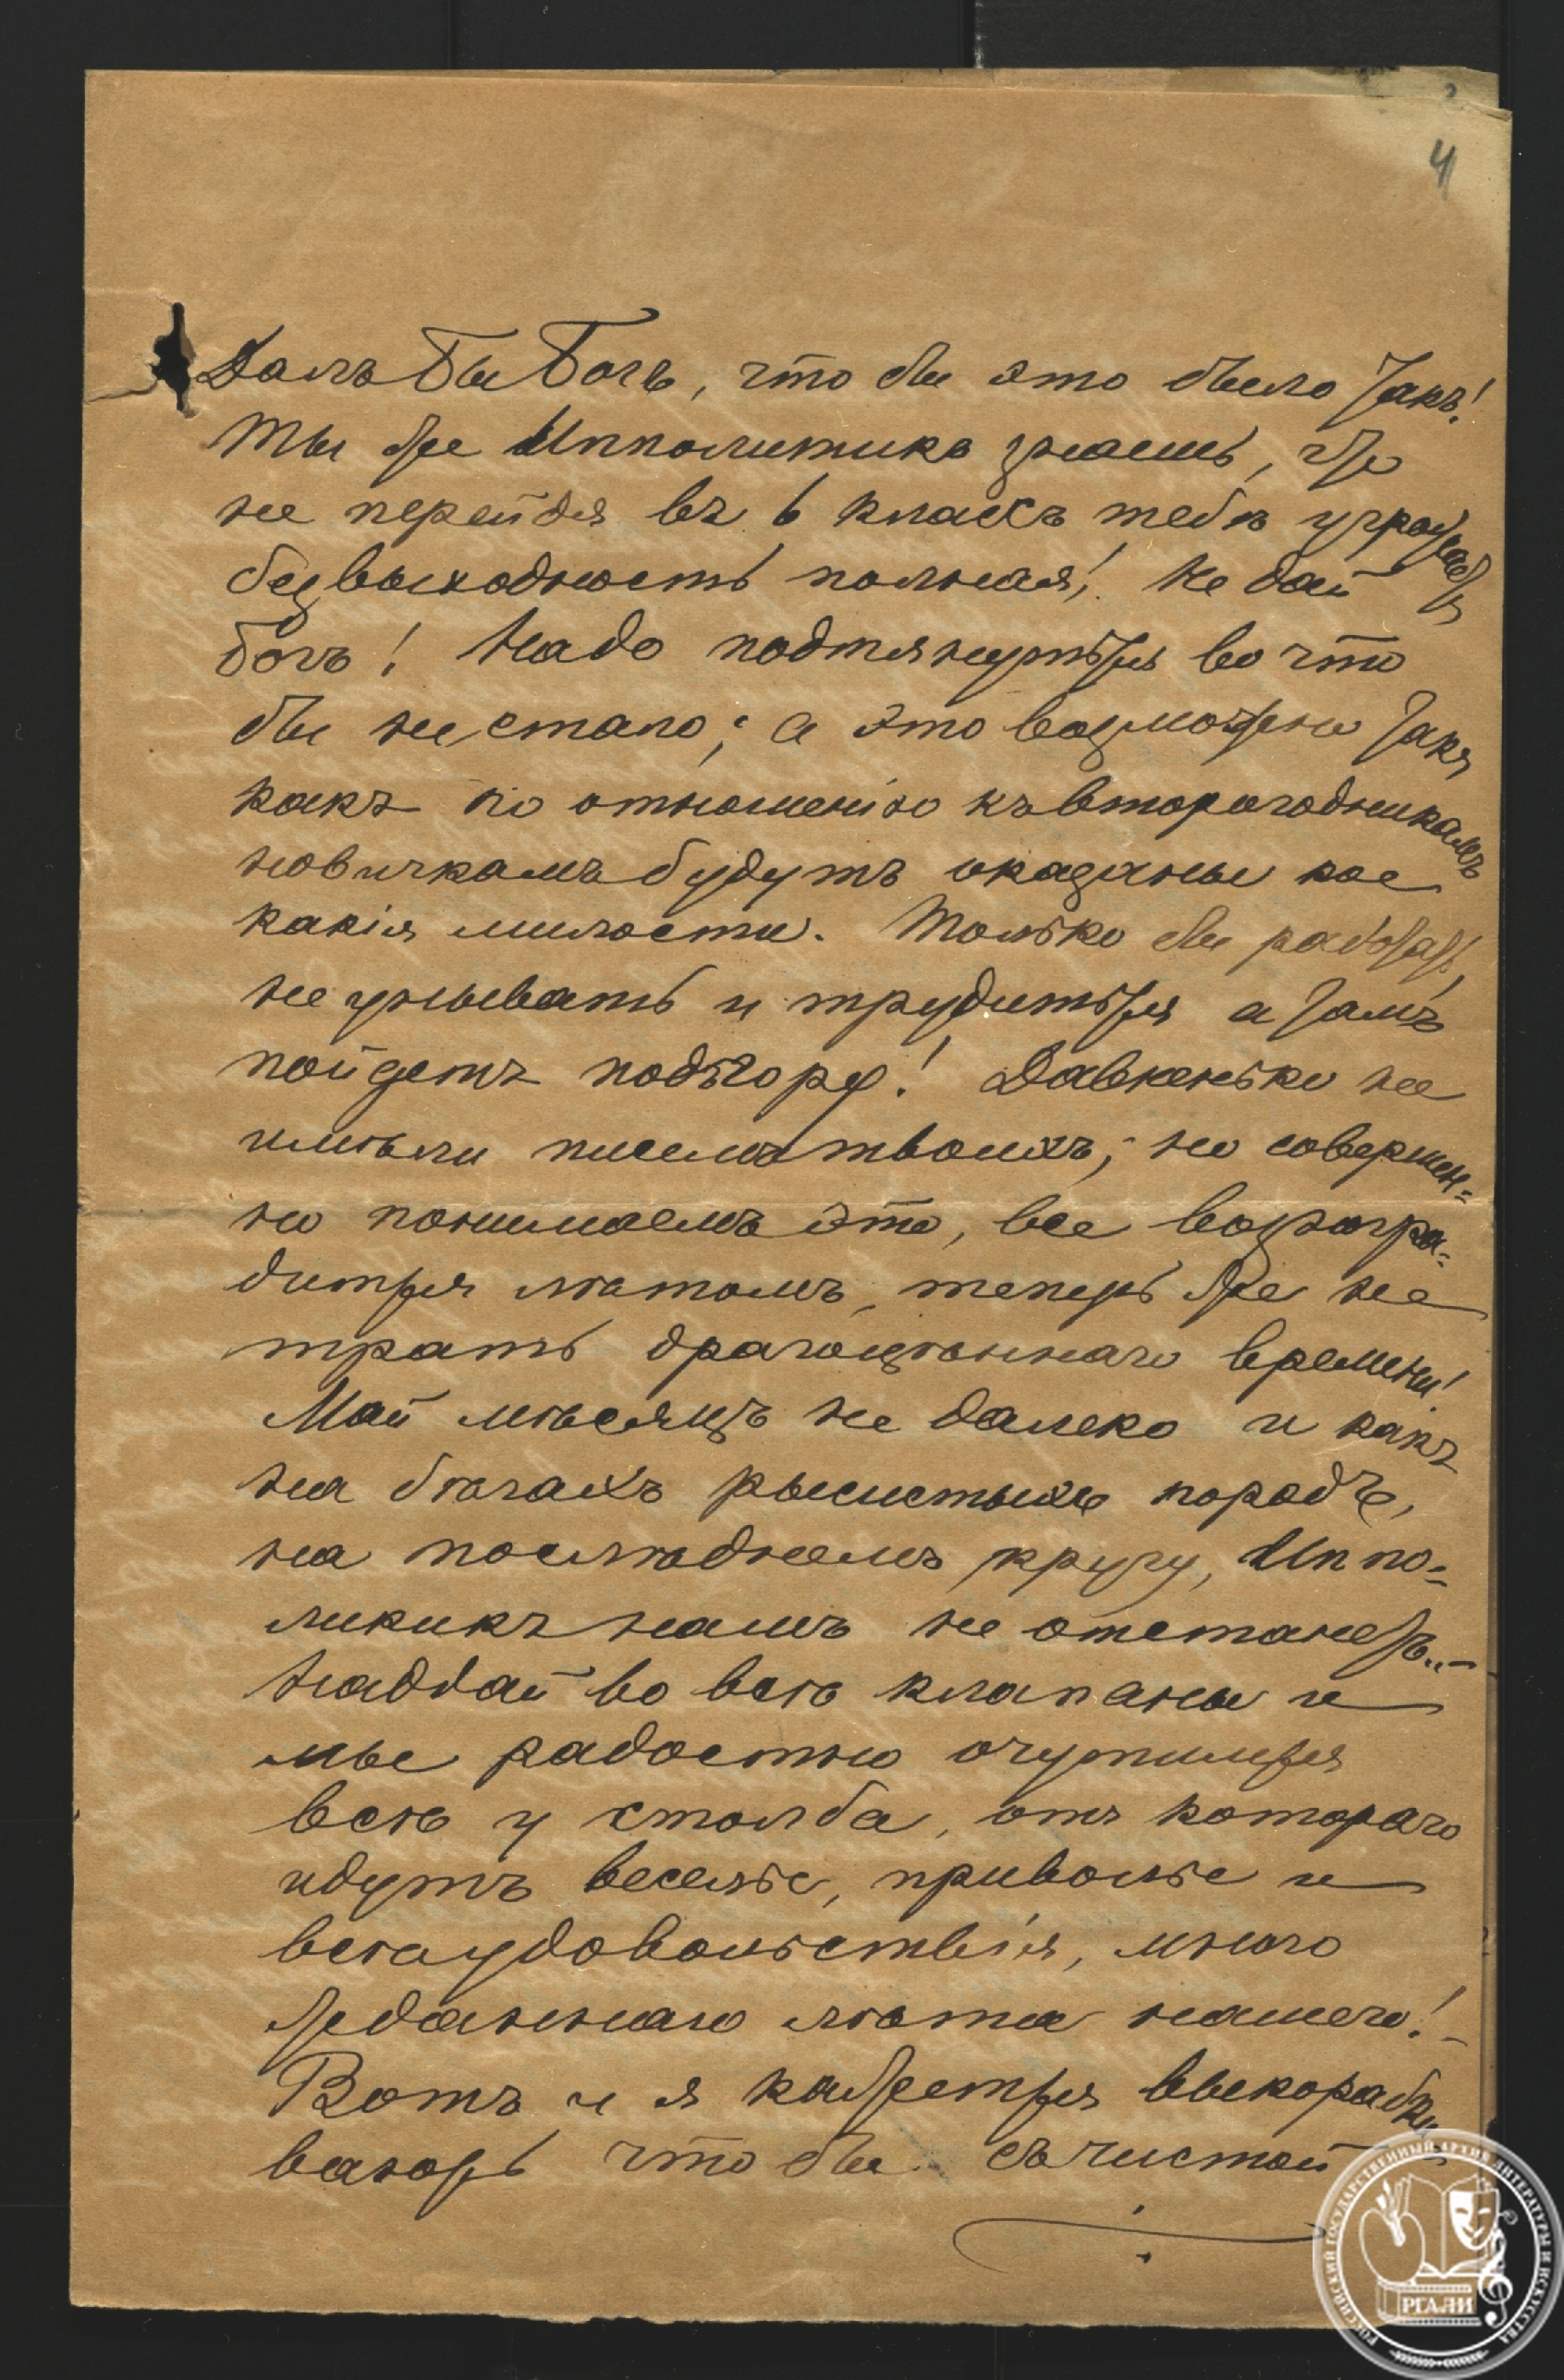 4
Далъ Бы Богъ, что бы это было такъ!
Ты же Ипполитика знаешь, что
не перейдя въ 6 классъ тебѣ угрожаетъ
безвыходность полная! Не дай
богъ! Надо подтянуться во что
бы ни стало; а это возможно такъ
какъ по отношенію къ второгодникамъ
новичкамъ будутъ оказаны кое
какія милости. Только бы работать,
не унывать и трудиться а тамъ
пойдетъ подъгору! Давненько не
имѣли писемъ твоихъ; но совершен=
но понимаемъ это, все вознагра=
дится лѣтомъ, теперь же не
трать драгоцѣннаго времени!
Май мѣсяцъ не далеко и какъ
на бѣгахъ рысистыхъ породъ,
на послѣднемъ кругу, Иппо=
ликикъ нашъ не отстанетъ..-
Наддай во всѣ клапаны и
мы радостно очутимся
всѣ у столба, отъ котораго
идутъ веселье, приволье и
всѣ удовольствія, много
жданнаго лѣта нашего!-
Вотъ и я кажется выкарабки
ваюсь что бы съ чистой
РОССИЙСКИЙ ГОСУДАРСТВЕННЫЙ АРХИВ ЛИТЕРАТУРЫ И ИСКУССТВА
РГАЛИ